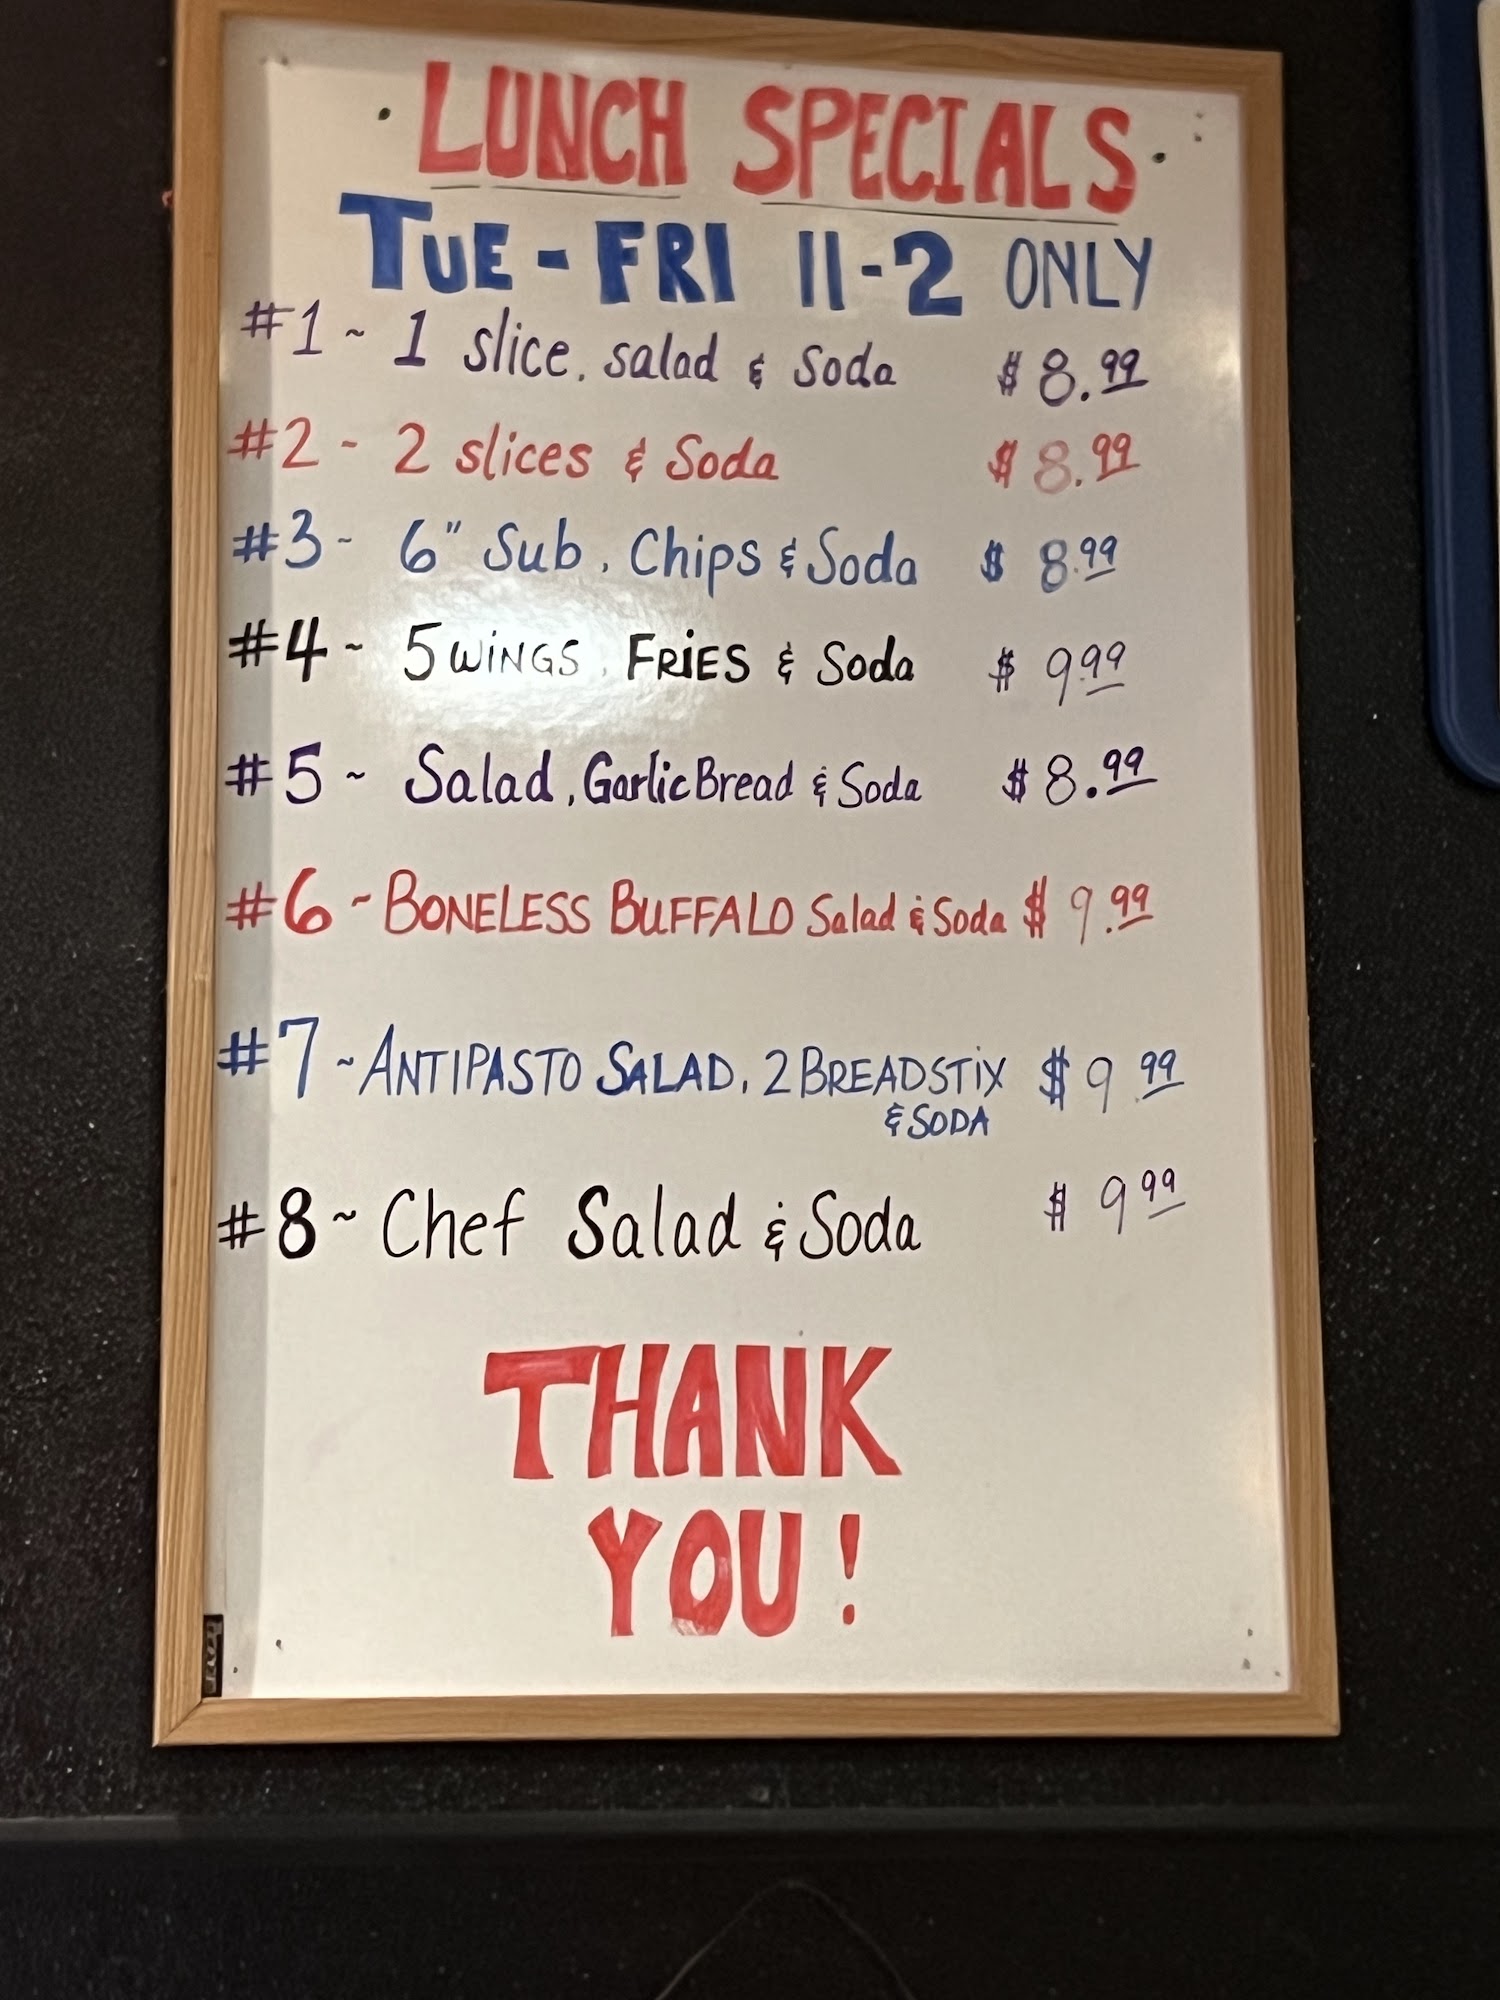 LUNCH SPECIALS
TUE-FRI 11-2 ONLY
#1~ 1 slice, salad & Soda $8.99
#2~ 2 slices & Soda $8.99
#3~ 6" Sub, Chips & Soda $8.99
#4~ 5 WiNGS, FRiES & Soda $9.99
#5~ Salad, Garlic Bread & Soda $8.99
#6~ BONELESS BUFFALO Salad & Soda $9.99
#7~ ANTIPASTO SALAD, 2 BREADSTiX $9.99
& SODA
#8~ Chef Salad & Soda $9.99
THANK
YOU!